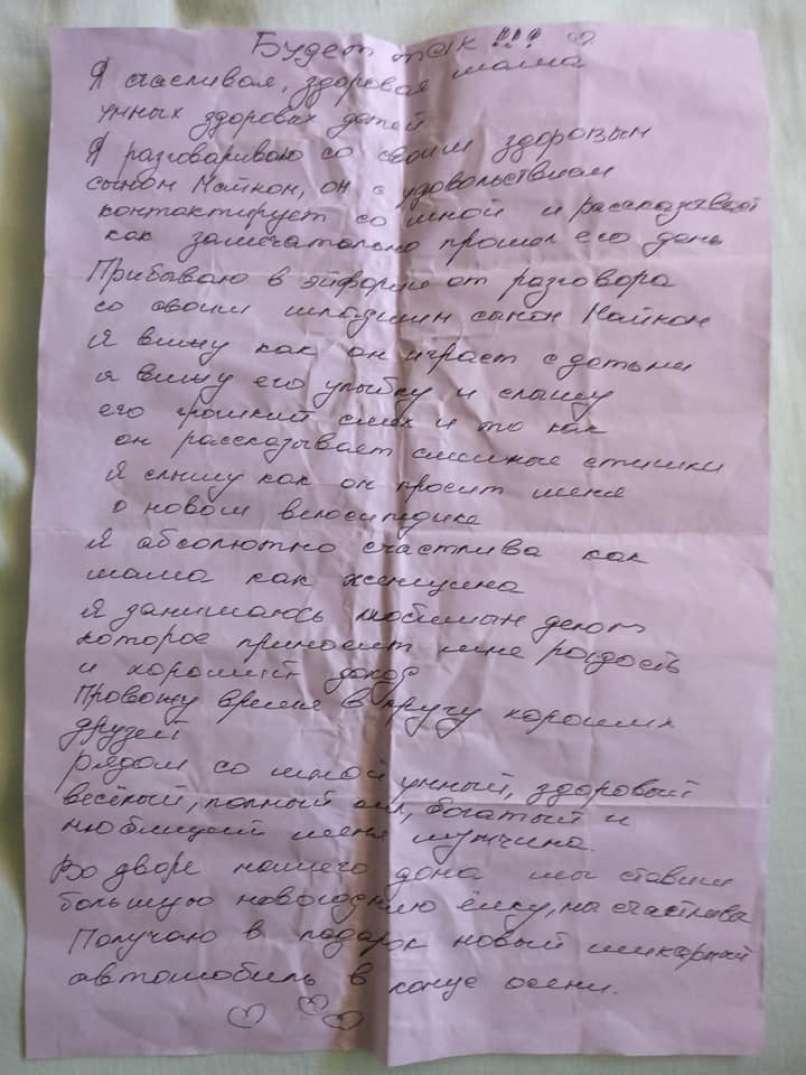 Будет так!!!
Я счасливая, здоровая мама
умных здоровых детей
Я разговариваю со своим здоровым
сыном Майком, он с удовольствием
контактирует со мной и рассказывает
как замечательно прошел его день
Прибываю в эйфории от разговора
со своим младшим сыном Майком
Я вижу как он играет с детьми
я вижу его улыбку и слышу
его громкий смех и то как
он рассказывает смешные стишки
Я слышу как он просит меня
о новом велосипедике
Я абсолютно счастлива как
мама как женщина
Я занимаюсь любимым делом
которое приносит мне радость
и хороший доход
Провожу время в кругу хороших
друзей
рядом со мной умный, здоровый
весёлый, полный сил, богатый и
любящий меня мужчина.
Во дворе нашего дома мы ставим
большую новогоднюю ёлку, мы счастливы
Получаю в подарок новый шикарный
автомобиль в конце осени.